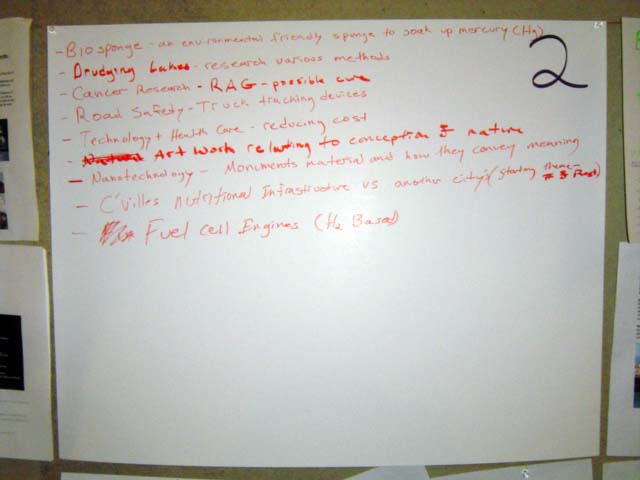 2
- Biosponge - an environmental friendly sponge to soak up mercury (Hg)
- Drudying Lakes - research various methods
- Cancer Research - RAG - possible cure
- Road Safety - Truck tracking devices
- Technology + Health Care - reducing cost
- Art work relating to conception of nature
- Nanotechnology - Monuments material and how they convey meaning
- C'villes nutritional Infrastructure vs another city's (starting theme -
- Fuel cell Engines (H2 Based)